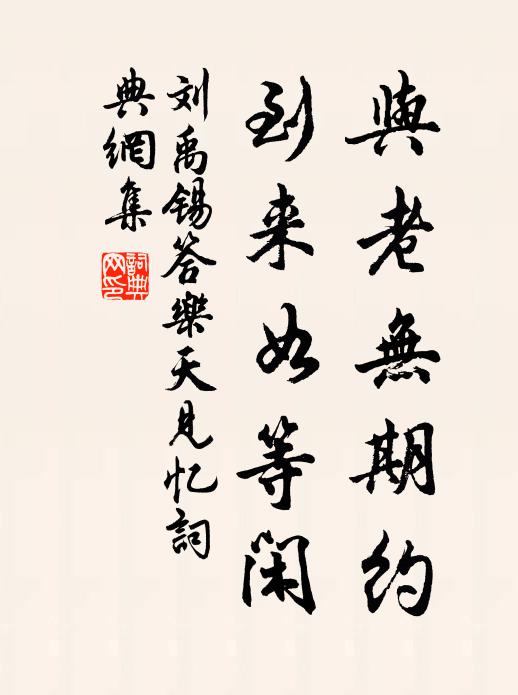 與老無期約
到来如等闲
刘禹锡答樂天見忆詞
典網集
詞典
网印